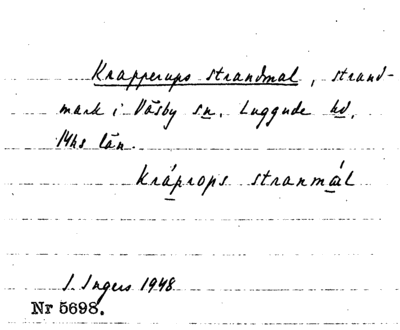 Krapperups strandmal, strand-
mark i Väsby sn. Luggude hd,
Mhs län.
Kráprops stranmál
I. Ingers 1948
Nr 5698.